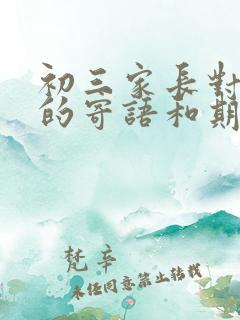 初三家長對
的寄語和期
梵辛
未任同意禁止轉載